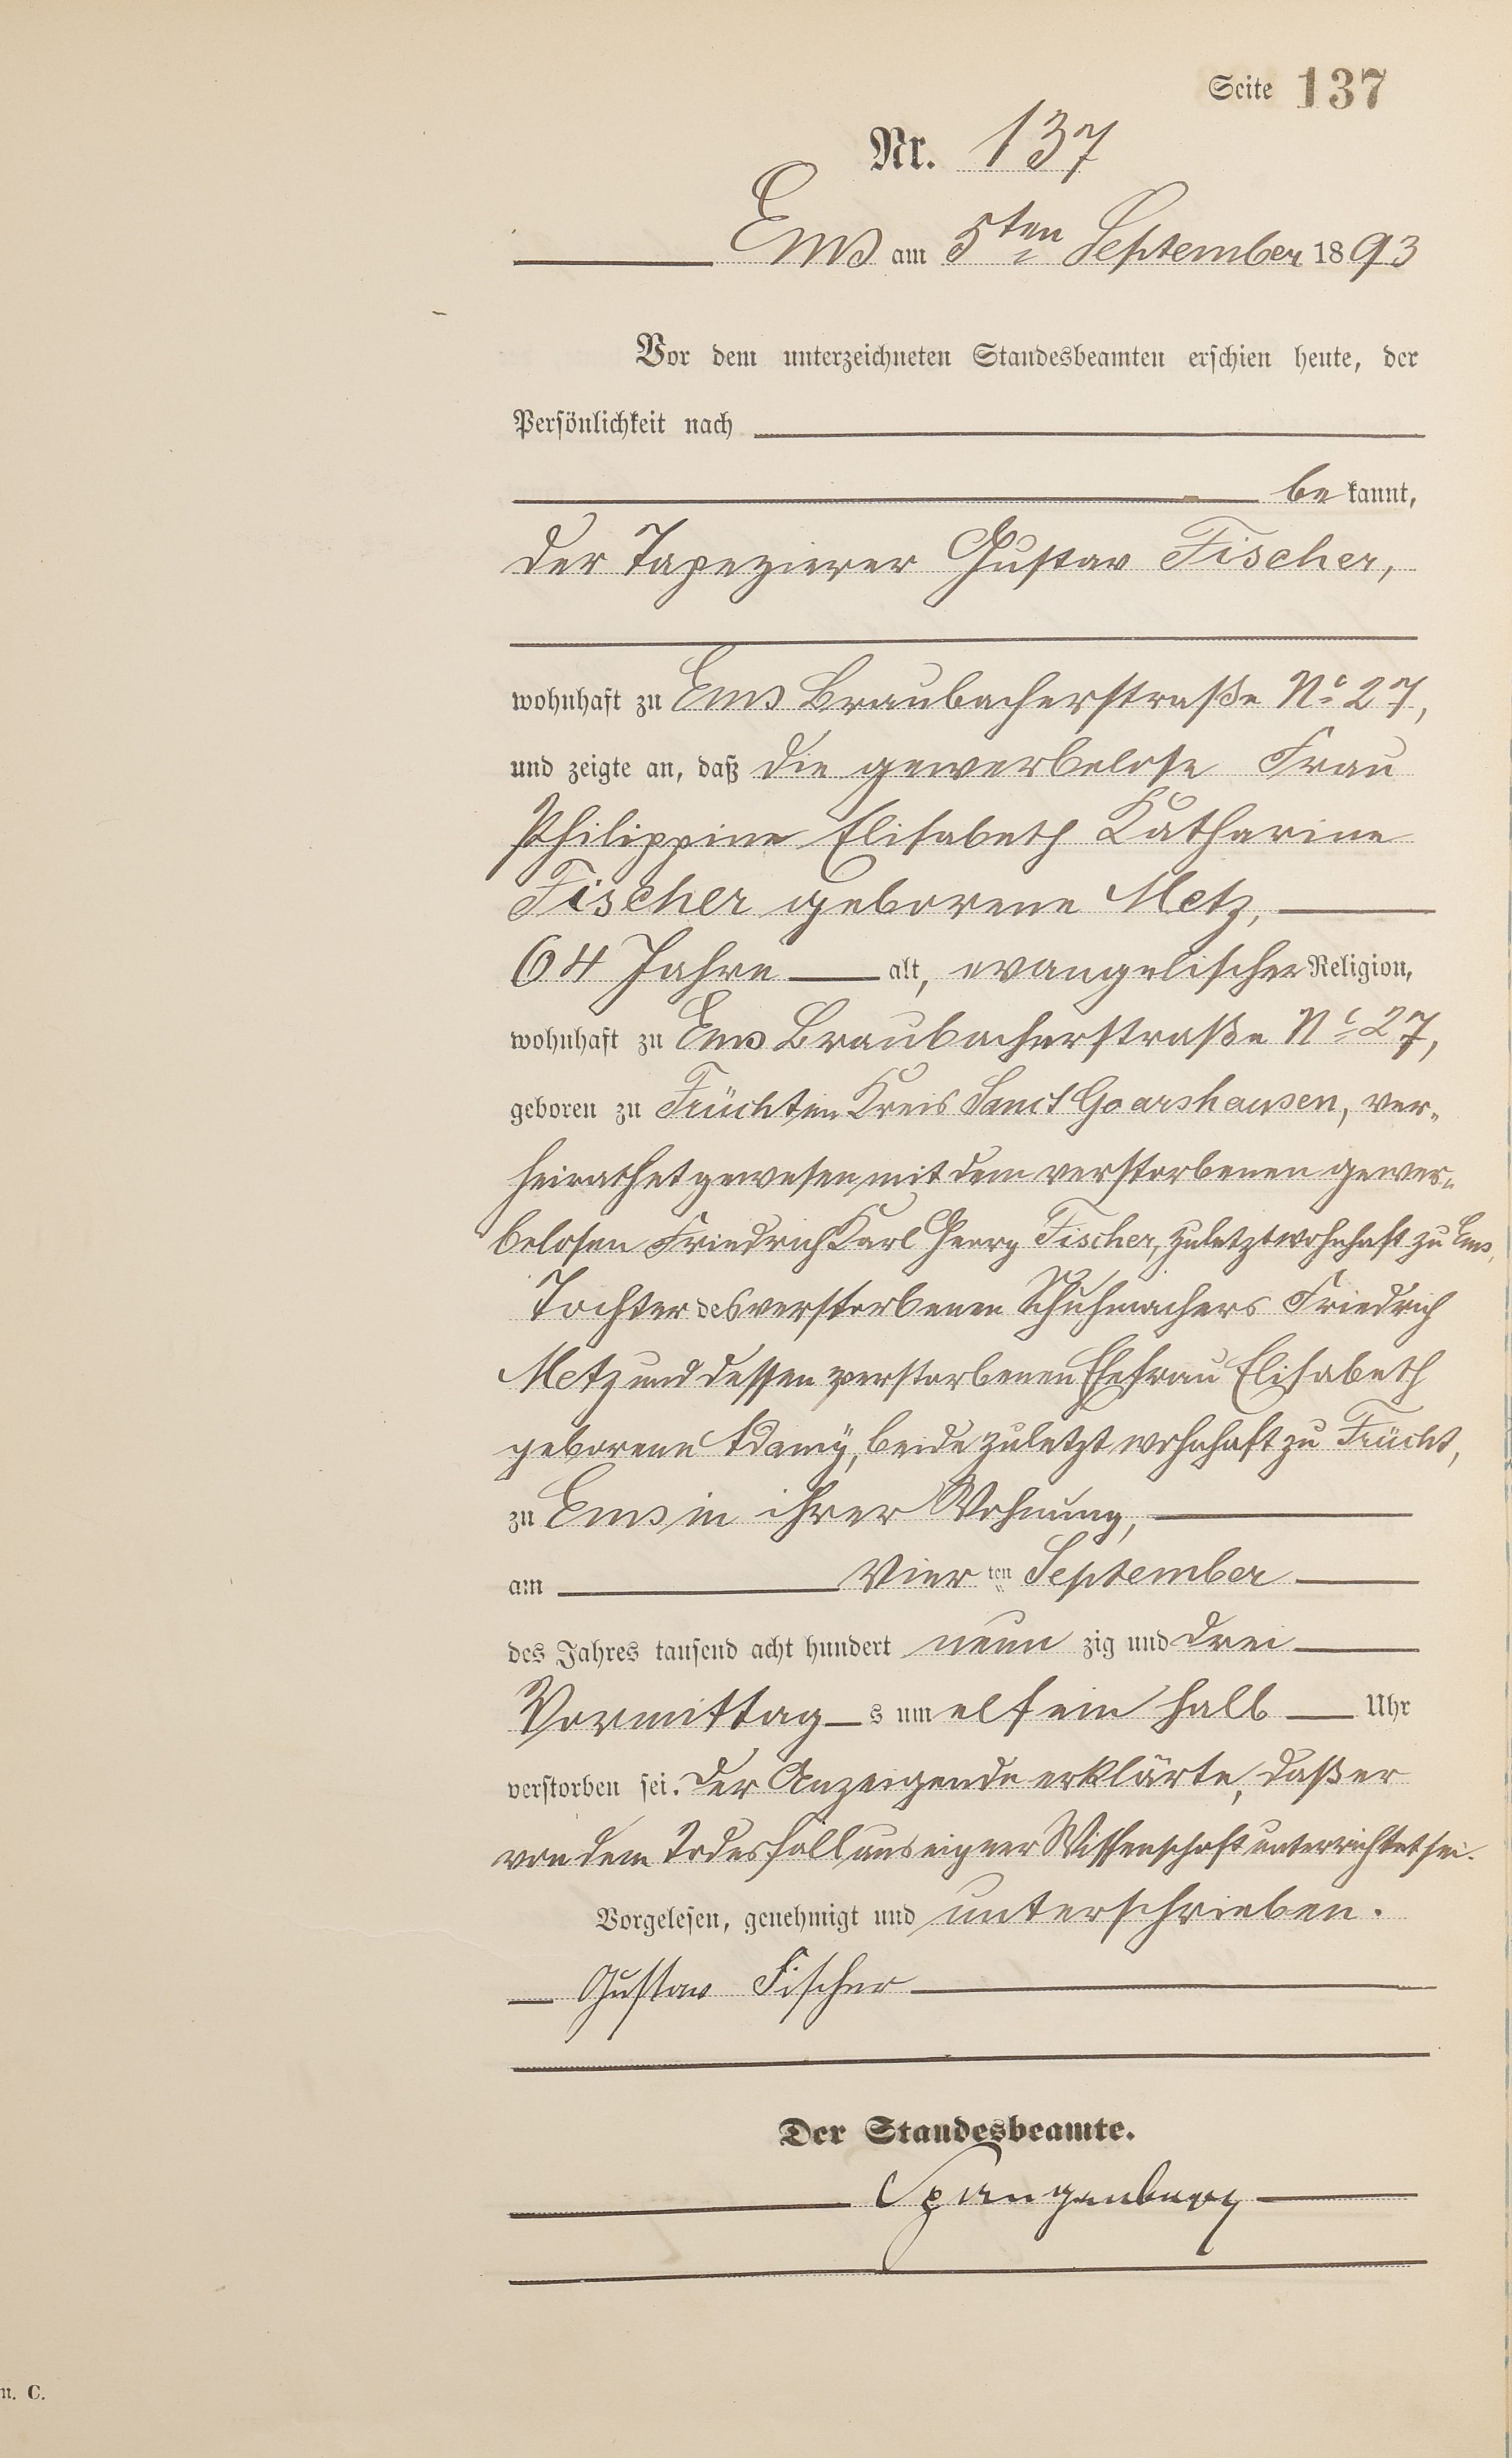 Seite 137
Nr. 137
Ems am 5ten September 1893
Vor dem unterzeichneten Standesbeamten erschien heute, der
Persönlichkeit nach
be kannt,
der Tapezierer Gustav Fischer,
wohnhaft zu Ems Braubacherstraße No 27,
und zeigte an, daß die gewerbelose Frau
Philippine Elisabeth Katharine
Fischer geborene Metz,
64 Jahre alt, evangelischer Religion,
wohnhaft zu Ems Braubacherstraße No 27,
geboren zu Frücht im Kreis Sanct Goarshausen, ver-
heirathet gewesen mit dem verstorbenen gewer-
belosen Friedrich Karl Georg Fischer, zuletzt wohnhaft zu Ems,
Tochter des verstorbenen Schuhmachers Friedrich
Metz und dessen verstorbenen Ehefrau Elisabeth
geborene Adamÿ, beide zuletzt wohnhaft zu Frücht,
zu Ems in ihrer Wohnung,
am vier ten September
des Jahres tausend acht hundert neun zig und drei
Vormittag s um elf ein halb Uhr
verstorben sei. Der Anzeigende erklärte, daß er
von dem Todesfall aus eigner Wissenschaft unterrichtet sei.
Vorgelesen, genehmigt und unterschrieben.
Gustav Fischer
Der Standesbeamte.
Spangenberg
n. C.